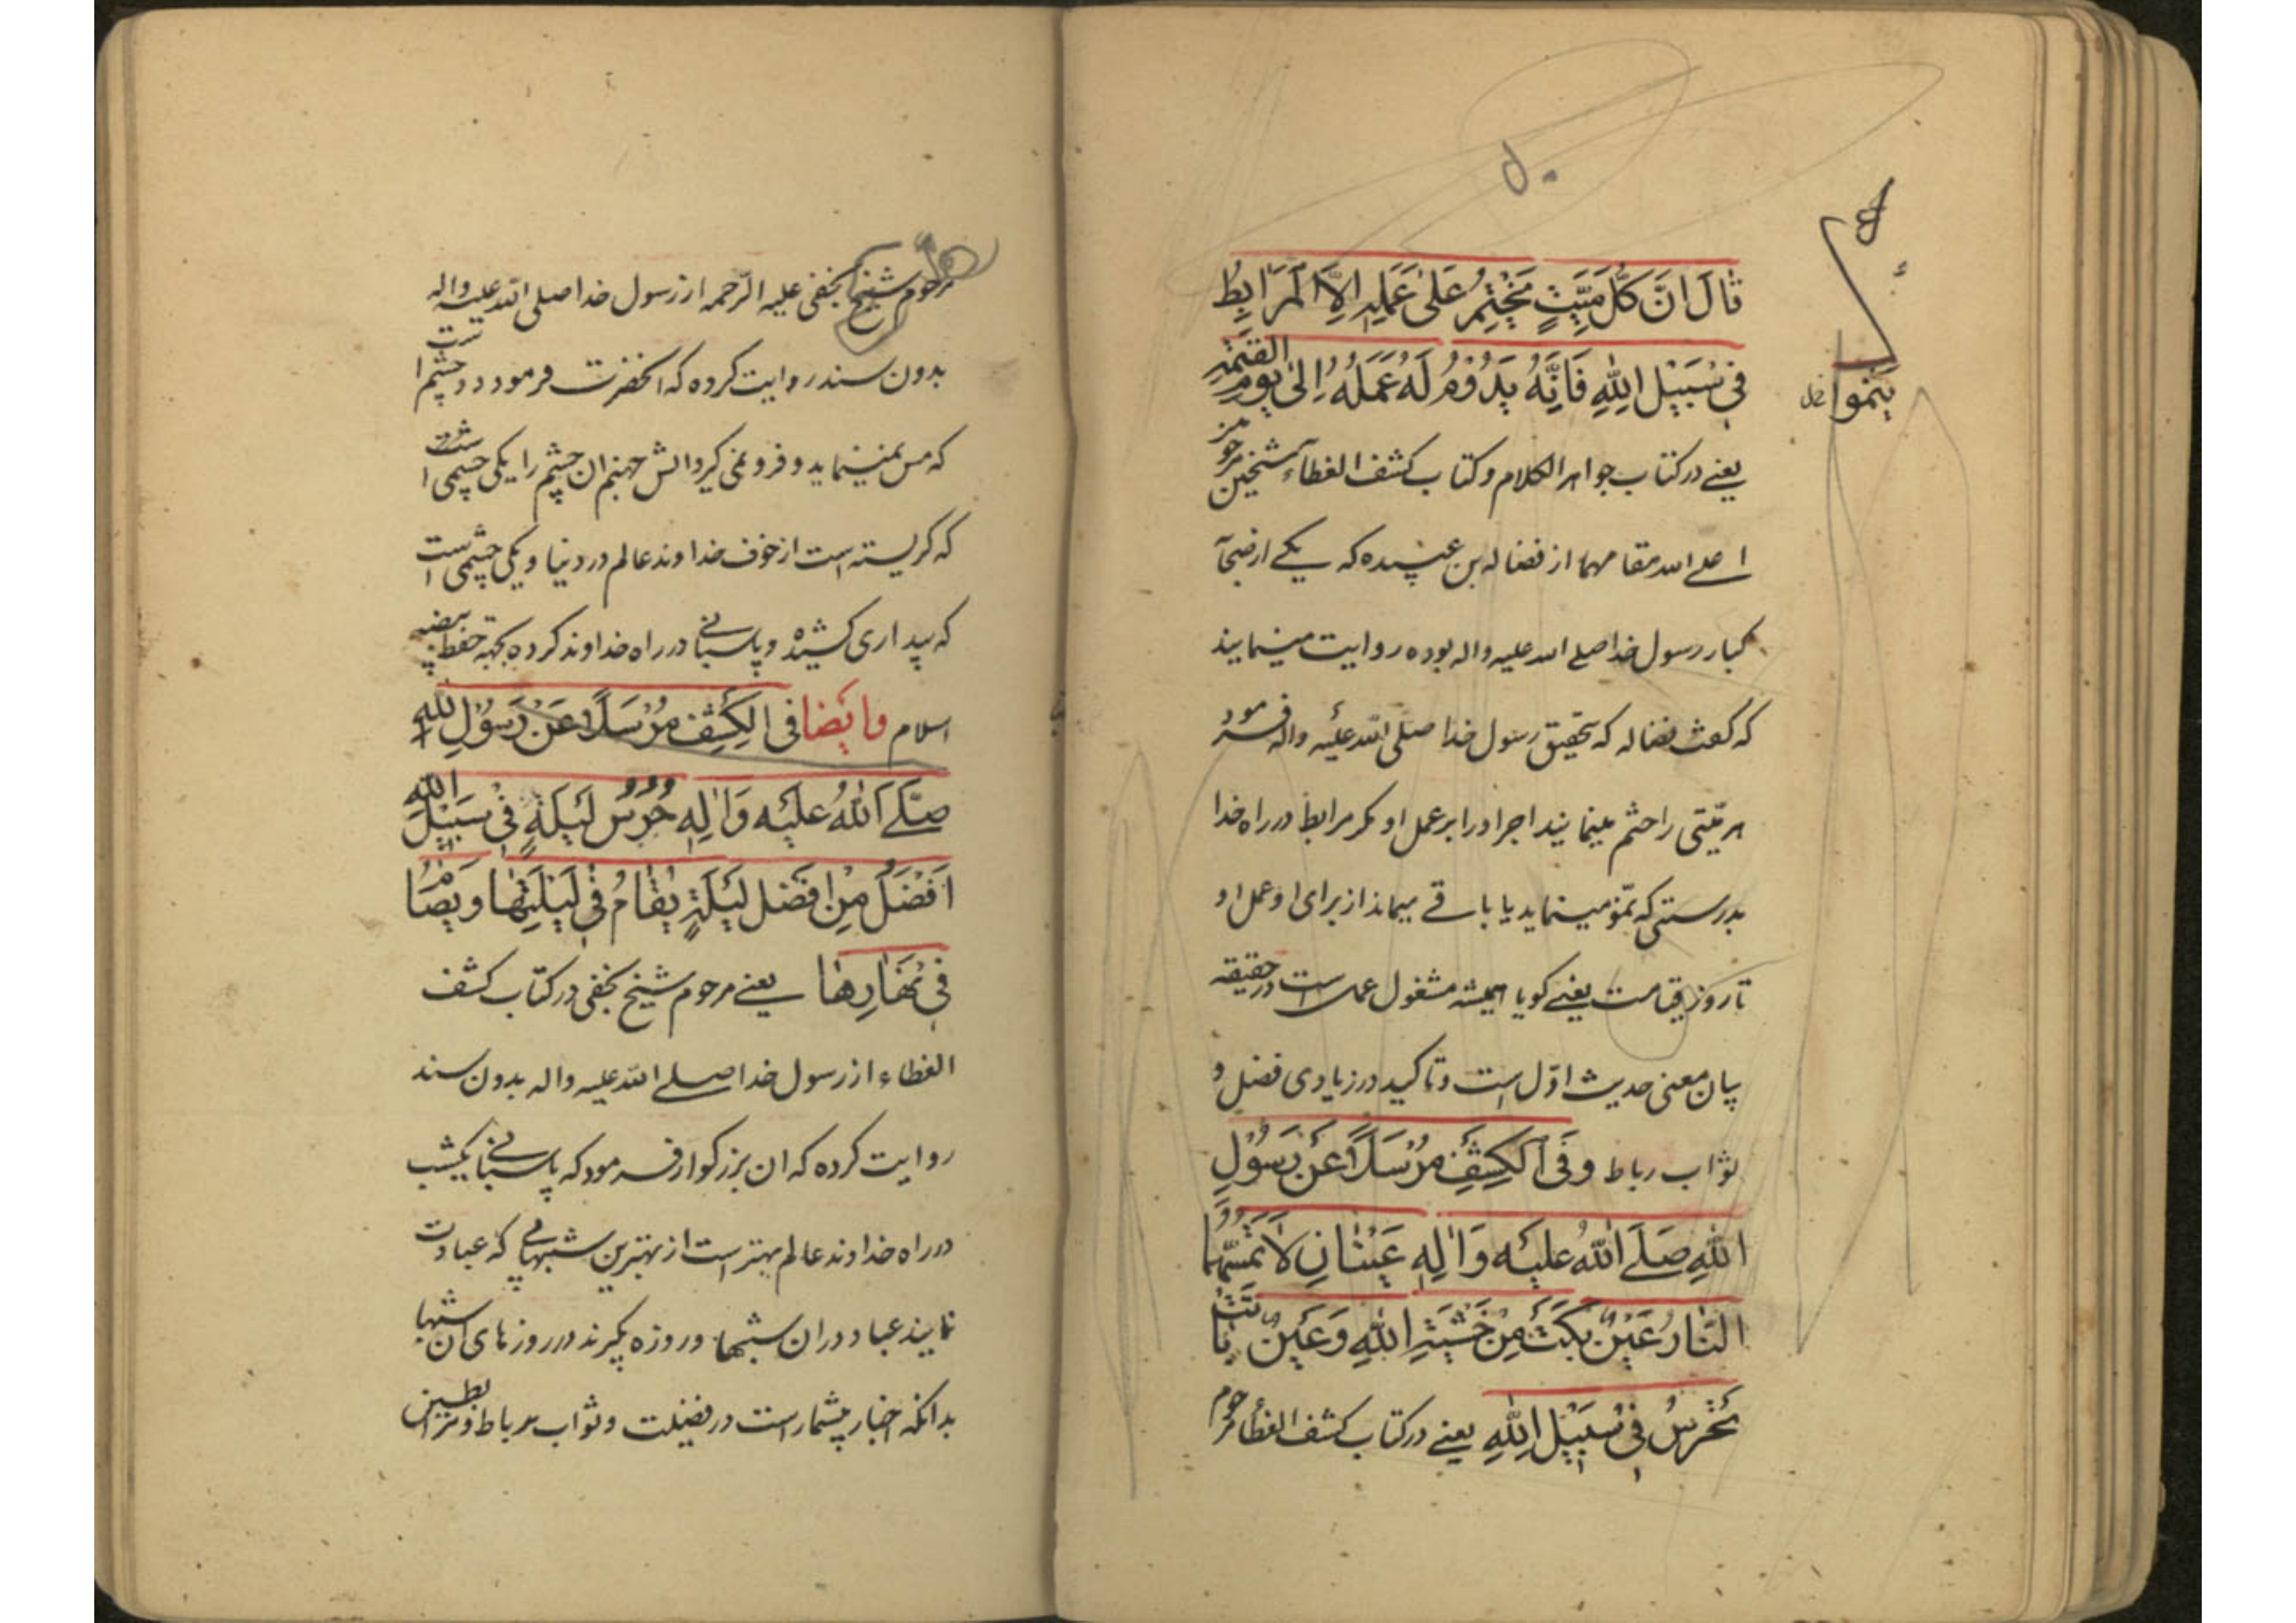 قٰالَ اِنَّ كُلَّ مَيِّتٍ يُخْتَمُ عَلىٰ عَمَلِهِ اِلاَّ الْمُرٰابِطُ
فِى سَبيٖلِ اللهِ فَاِنَّهُ يَدُوُمُ لَهُ عَمَلُهُ اِلىٰ يَوْمِ القيٰمَةِ
ينموا خل
يعنے در كتاب جواهر الكلام و كتاب كشف الغطاء شيخين مرحومين
اعلے الله مقامهما از فضاله بن عبيده كه يكے از صحابه
كبار رسول خدا صلے الله عليه واله بوده روايت مينمايند
كه كفت فضاله كه بتحقيق رسول خدا صلى الله عليه واله فرمود
هر ميّتى را ختم مينمايند اجر او را بر عمل او مكر مرابط در راه خدا
بدرستى كه نموّ مينمايد يا باقے ميماند از براى او عمل او
تا روز قيامت يعنے كويا هميشه مشغول عمل است در حقيقه
بيان معنى حديث اوّل است و تاكيد در زيادى فضل و
ثواب رباط وَفِى الْكَشْفِ مُرْسَلاً عَنْ رَسُوُلِ
اللهِ صَلَّے اللهُ عَليْهِ وَاٰلِهِ عَيْنٰانِ لاٰ تَمَسُّهُمَا
النّٰارُ عَيْنٌ بَكَتْ مِنْ خَشْيَةِ اللهِ وَعَيْنٌ بٰاتَتْ
تَحْرُسُ فِى سَبيٖلِ اللهِ يعنے در كتاب كشف الغطاء مرحوم
مرحوم شيخ نجفى عليه الرّحمه از رسول خدا صلى الله عليه واله
بدون سند روايت كرده كه انحضرت فرمود دو چشم است
كه مس نمينمايد و فرو نمى كيرد اتش جهنم ان چشم را يكى چشمى است
كه كريسته است از خوف خداوند عالم در دنيا و يكى چشمى است
كه بيدارى كشيده و پاسبانے در راه خداوند كرده بجهة حفظ بيضه
اسلام وايضا فى الكَشْفِ مُرْسَلاً عَنْ رَسُوُلِ اللهِ
صَلَّے اللهُ عَليْهِ وَاٰلِهِ حَرَسُ لَيْلَةٍ فِى سَبيٖلِ اللهِ
اَفْضَلُ مِنْ اَفْضَلِ لَيْلَةٍ يُقٰامُ فِى لَيْلَتِهٰا وَيُصٰامُ
فِى نَهٰارِهٰا يعنے مرحوم شيخ نجفى در كتاب كشف
الغطاء از رسول خدا صلے الله عليه واله بدون سند
روايت كرده كه ان بزركوار فرمود كه پاسبانے يكشب
در راه خداوند عالم بهتر است از بهترين شبهائے كه عبادت
نمايند عباد در ان شبها و روزه بكيرند در روزهاى ان شبها
بدانكه اخبار بيشمار است در فضيلت و ثواب رباط و مرابطين